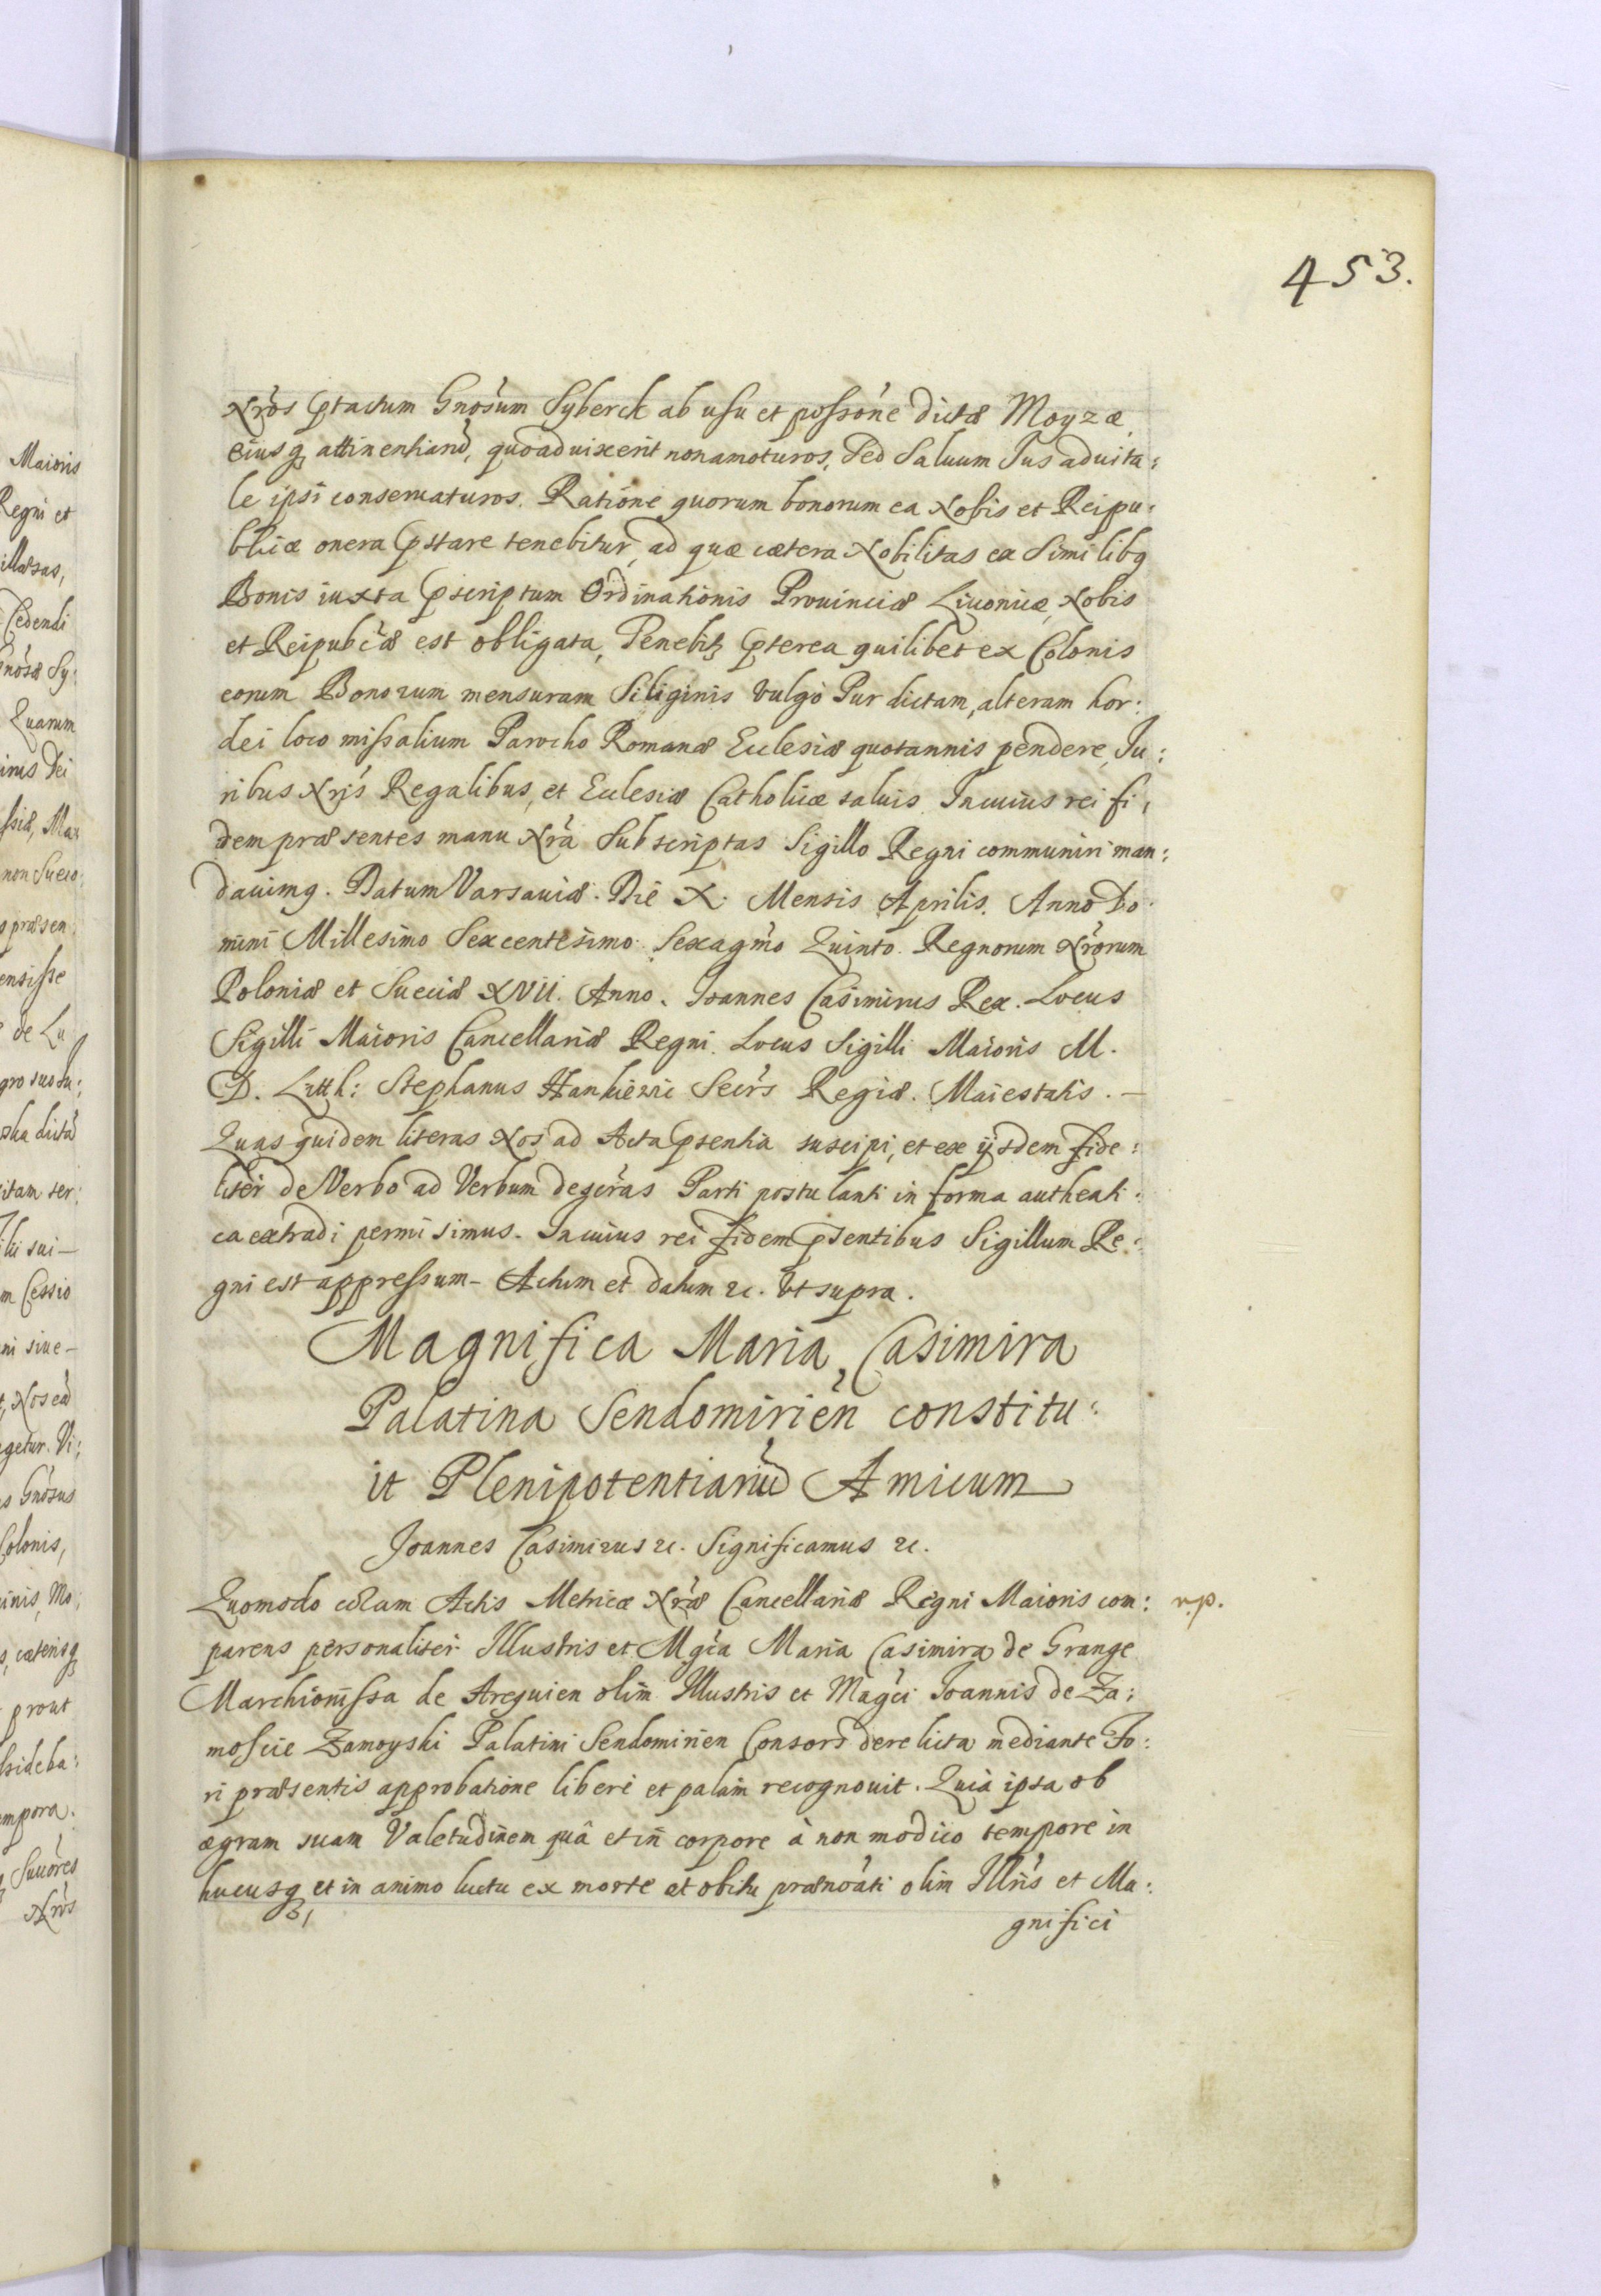 453.
Nrõs ptactum Gnosum Syberck ab usu et possone dictæ Moyzæ,
eiusq attinentiarũ, quoad vixerit non amoturos, Sed Saluum Ius aduita:
le ipsi conseruaturos. Ratione quorum bonorum ea Nobis et Reipu:
blicæ onera pstare tenebitur, ad quæ cætera Nobilitas ex Similibq
Bonis iuxta pscriptum Ordinationis Prouinciæ Liuonicæ, Nobis
et Reipubcæ est obligata, Tenebitz pterea quilibet ex Colonis
eorum Bonorum mensuram Siliginis vulgò Pur dictam, alteram hor:
dei loco missalium Parocho Romanæ Ecclesiæ quotannis pendere, Iu:
ribus Nris Regalibus, et Ecclesiæ Catholicæ saluis. In cuius rei fi,
dem præsentes manu Nra Subscriptas Sigillo Regni communiri man:
dauimq. Datum Varsauiæ. Die X. Mensis Aprilis. Anno Do
mini Millesimo Sexcentesimo Sexagmo Quinto. Regnorum Nrorum
Poloniæ et Sueciæ XVII. Anno. Ioannes Casimirus Rex. Locus
Sigilli Maioris Cancellariæ Regni. Locus Sigilli Maioris M.
D. Litth: Stephanus Hankiewic Secrs Regiæ. Maiestatis. –
Quas quidem literas Nos ad Acta psentia suscipi, et ex ijsdem fide:
liter de Verbo ad Verbum descras Parti postulanti in forma authenti:
ca extradi permisimus. In cuius rei fidem psentibus Sigillum Re:
gni est appressum – Actum et datum &c. Ut supra.
Magnifica Maria Casimira
Palatina Sendomirien constitu:
it Plenipotentiariũ Amicum
Joannes Casimirus &c. Significamus &c.
Quomodo coram Actis Metricæ Nræ Cancellariæ Regni Maioris com: r.p.
parens personaliter Illustris et Mgca Maria Casimira de Grange
Marchionissa de Arequien olim Illustris et Magci Joannis de Za:
moscie Zamoyski Palatini Sendomirien Consors derelicta mediante Fo:
ri præsentis approbatione liberè et palam recognouit. Quia ipsa ob
ægram suam Valetudinem quâ et in corpore à non modico tempore in
hucusq et in animo luctu ex morte et obitu prænoati olim Illris et Ma:
gnifici